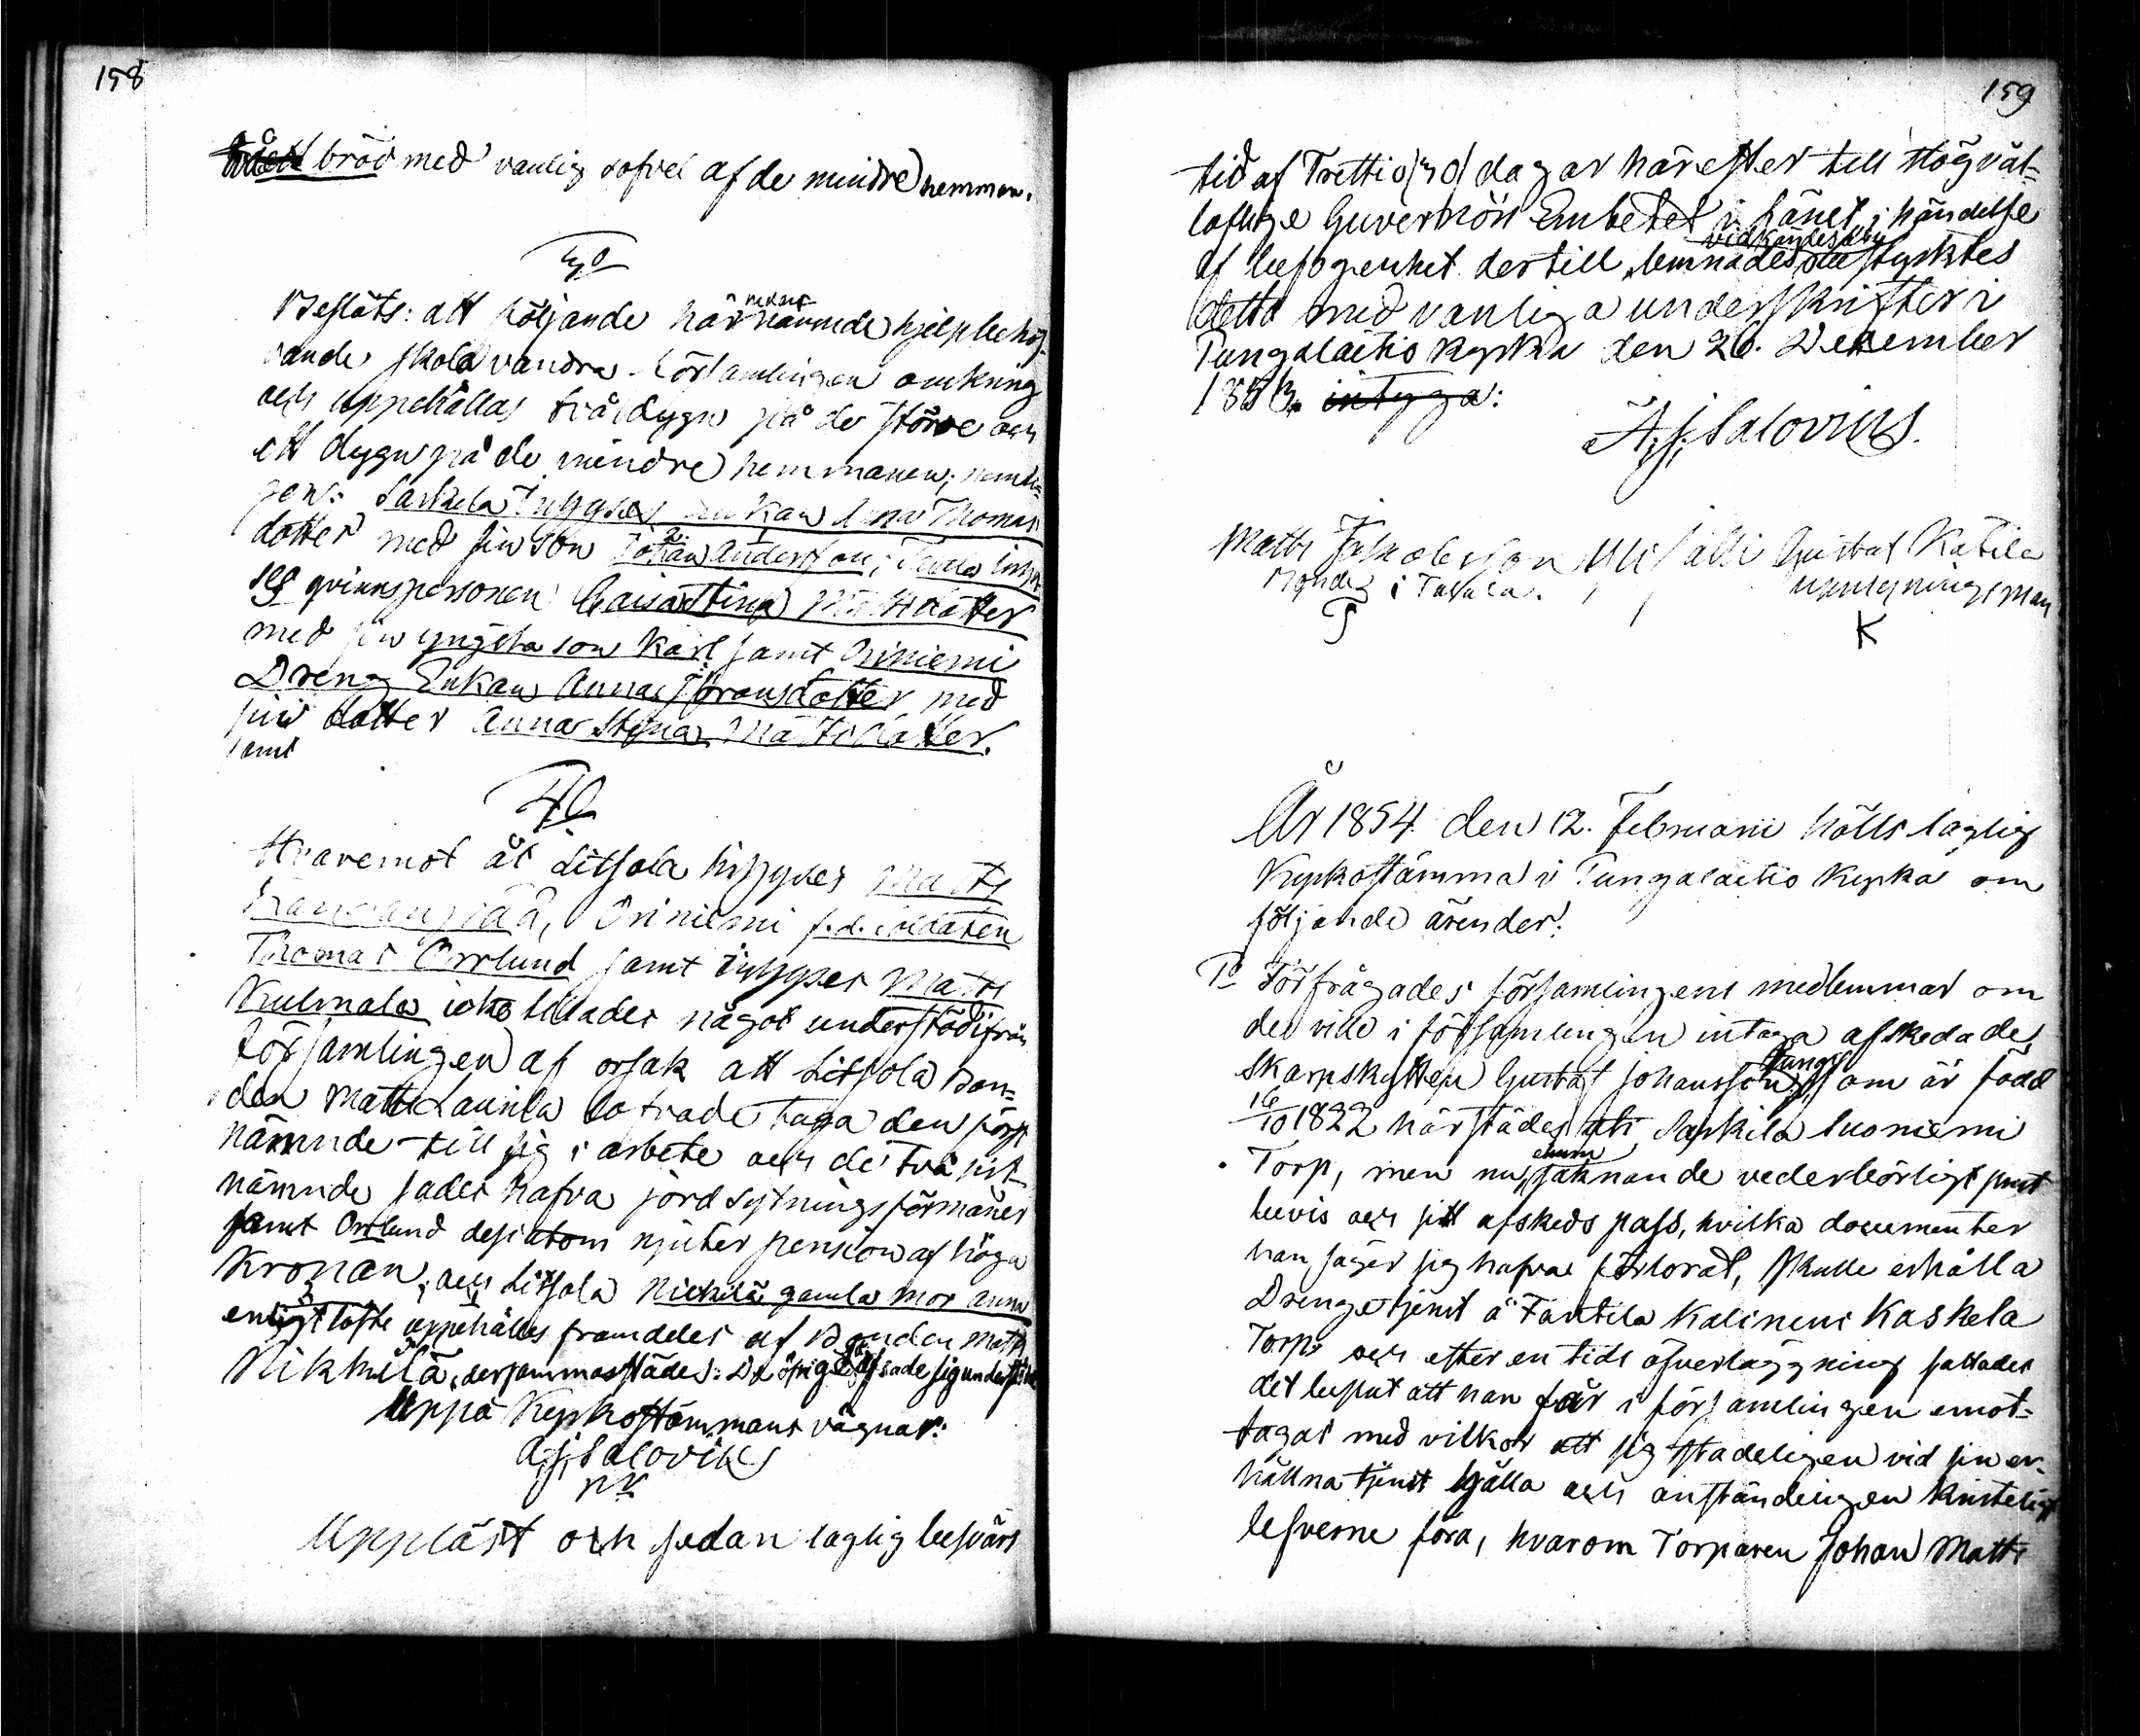 158
bröd med vanlig sofvel af de mindre hemman.
3o
Beslöts: att följande här nedan nämnde hjelpbehöf-
vande skola vandra församlingen omkring
och uppehållas två dygn på de större och
ett dygn på de mindre hemmanen; nemli-
gen: Sarkela Inhyses Enkan Anna Thomas
dotter med sin son Johan Andersson;
ses qvinnspersonen Caisa Stina Mattsdotter
med sin yngsta son Karl samt Oriniemi
Dreng Enkan Anna Göransdotter med
sin dotter Anna Stina Mattsdotter.
samt
4o
Hvaremot åt Litsola Inhyses Matts
Oriniemi f.d. soldaten
Thomas Orrlund samt Inhyses Matts
Kulmala icke tillades något understöd ifrån
församlingen af orsak att Litsola Bon-
den Matts Launila lofvade taga den först
nämnde till sig i arbete och de två sist
nämnde sades hafva jordsytningsförmåner
samt Orrlund dessutom njuter pension af höga
Kronan; och Litsola Nikkilä gamla mor Anna
enligt löfte uppehålles framdeles af Bonden Matts
Nikkilä, dersammastädes:
Uppå Kyrkostämmans vägnar:
A.J. Salovius
Uppläst och sedan laglig besvärs
159
tid af Trettio (30) dagar härefter till Högväl-
loflige Guvernörs Embetet i länet, i händelse
af befogenhet dertill, lemnades
detta med vanliga underskrifter i
Pungalaitio Kyrka den 26. December
1853. intyga:
A.J. Salovius.
Matts Jakobsson Gustaf Katila
Bonde i uppsyningsman
K
År 1854 den 12. Februari hölls laglig
Kyrkostämma i Pungalaitio Kyrka om
följande ärender:
1o Förfrågades församlingens medlemmar om
de ville i församlingen intaga afskedade
Skarpskytten Gustaf Johansson Kung, som är född
16/10 1822 härstädes uti Sarkila Suoniemi
Torp, men nu ehuru saknande vederbörligt prest
bevis och sitt afskeds pass, hvilka documenter
han säger sig hafva förlorat, skulle erhålla
Drengetjenst å Fantila Kalinens Kaskela
Torp; och efter en tids öfverläggning fattades
det beslut att han får i församlingen emot-
tagas med vilkor att sig stadeligen vid sin er-
hållna tjenst hålla och anständigen kristeligt
lefverne föra, hvarom Torparen Johan Matts